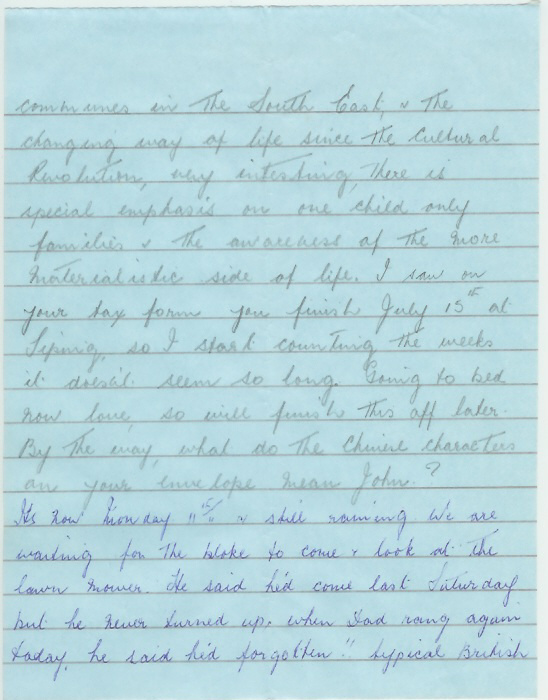 communes in the South East, & the
changing way of life since the Cultural
Revolution, very intersting, there is
special emphasis on one child only
families & the awareness of the more
materialistic side of life. I saw on
your tax form you finish July 15th at
Siping, so I start counting the weeks
it doesn't seem so long. Going to bed
now love, so will finish this off later.
By the way, what do the Chinese characters
on your envelope mean John.?
Its now Monday 11th & still raining We are
waiting for the bloke to come & look at the
lawn mower. He said he'd come last Saturday
but he never turned up. when Dad rang again
today, he said he'd forgotten!! typical British